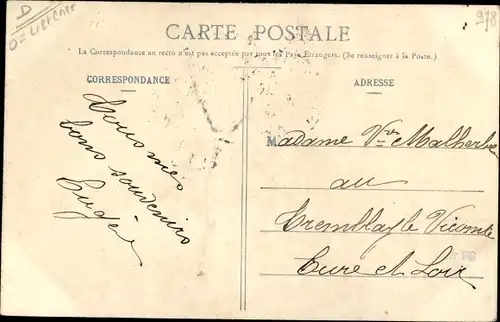 D
978
CARTE POSTALE
La Correspondance au recto n'est pas acceptée par tous les Pays Etrangers. (Se renseigner à la Poste.)
CORRESPONDANCE
Tous mes
bons souvenirs
ADRESSE
Madame Vve Malherbe
au
Tremblay le Vicomte
Eure et Loir